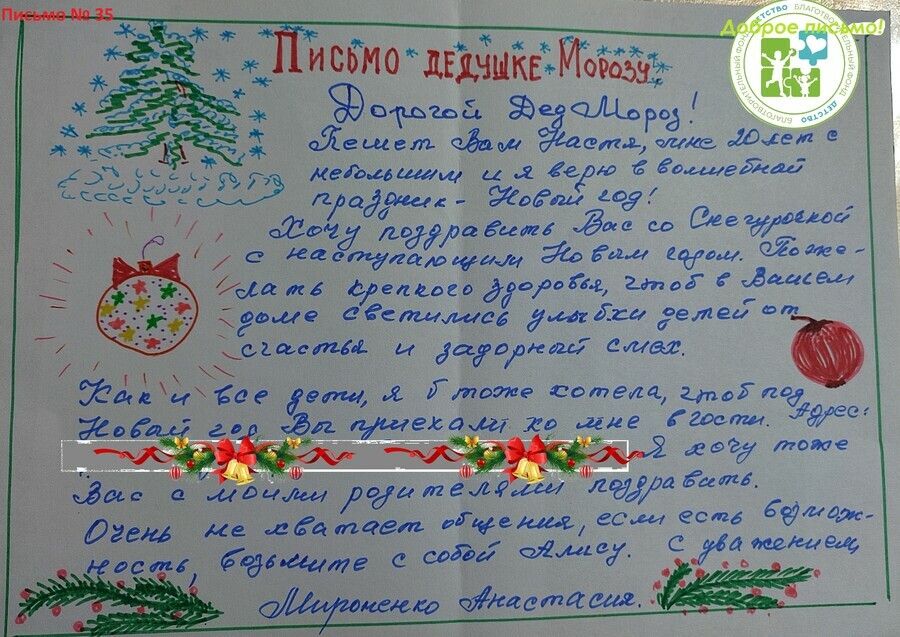 Письмо № 35
Доброе письмо!
БЛАГОТВОРИТЕЛЬНЫЙ ФОНД ДЕТСТВО БЛАГОТВОРИТЕЛЬНЫЙ ФОНД ДЕТСТВО
ПИСЬМО ДЕДУШКЕ МОРОЗУ.
Дорогой Дед Мороз!
Пешет Вам Настя, мне 20 лет с
небольшим и я верю в волшебной
праздник - Новый год!
Хочу поздравить Вас со Снегурочкой
с наступающим Новым годом. Поже-
лать крепкого здоровья, чтоб в Вашем
доме светились улыбки детей от
счастья и задорный смех.
Как и все дети, я б тоже хотела, чтоб под
Новый год Вы приехали ко мне в гости. Адрес:
Я хочу тоже
Вас с моими родителями поздравить.
Очень не хватает общения, если есть возмож-
ность, возьмите с собой Алису. С уважением
Мироненко Анастасия.